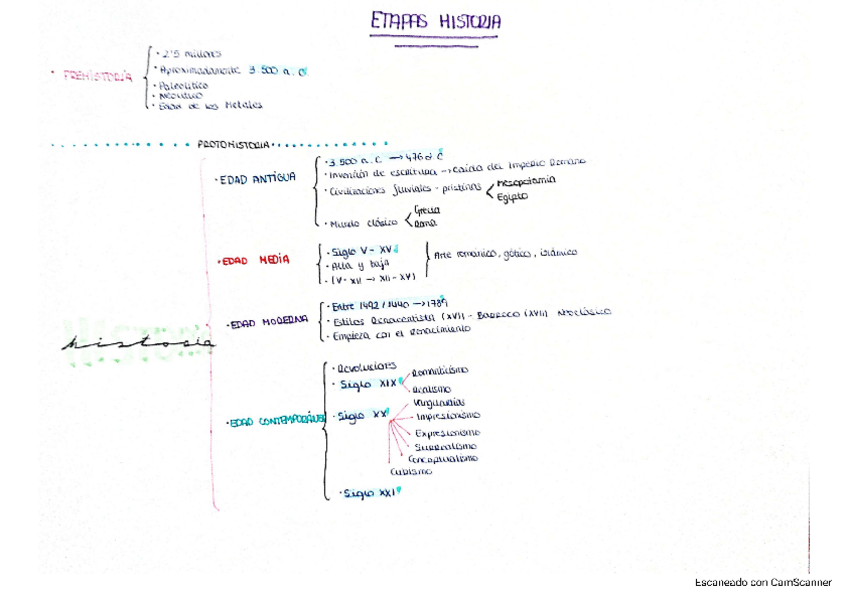 ETAPAS HISTORIA
· 2'5 millones
· Aproximadamente 3.500 a.C
· PREHISTORIA
· Paleolítico
· Neolítico
· Edad de los Metales
PROTOHISTORIA
· EDAD ANTIGUA
· 3.500 a.C → 476 d.C
· Invención de escritura → caída del Imperio Romano
· Civilizaciones fluviales - prístinas
Mesopotamia
Egipto
· Mundo clásico
Grecia
Roma
· EDAD MEDIA
· Siglo V - XV
· Alta y baja
· (V - XII → XII - XV)
Arte románico, gótico, islámico
· EDAD MODERNA
· Entre 1492 / 1440 → 1789
· Estilos Renacentista (XVI) - BARROCO (XVII) Neoclásico
· Empieza con el Renacimiento
historia
· EDAD CONTEMPORÁNEA
· Revoluciones
· Siglo XIX
Romanticismo
Realismo
· Siglo XX
Vanguardias
Impresionismo
Expresionismo
Surrealismo
Conceptualismo
Cubismo
· Siglo XXI
Escaneado con CamScanner